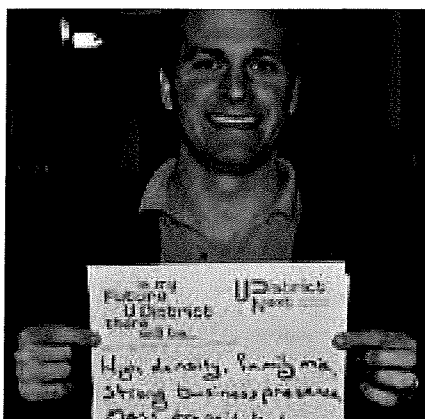 in my
future
U District
there
will be...
U District
Next
High density, family mix,
strong business presence,